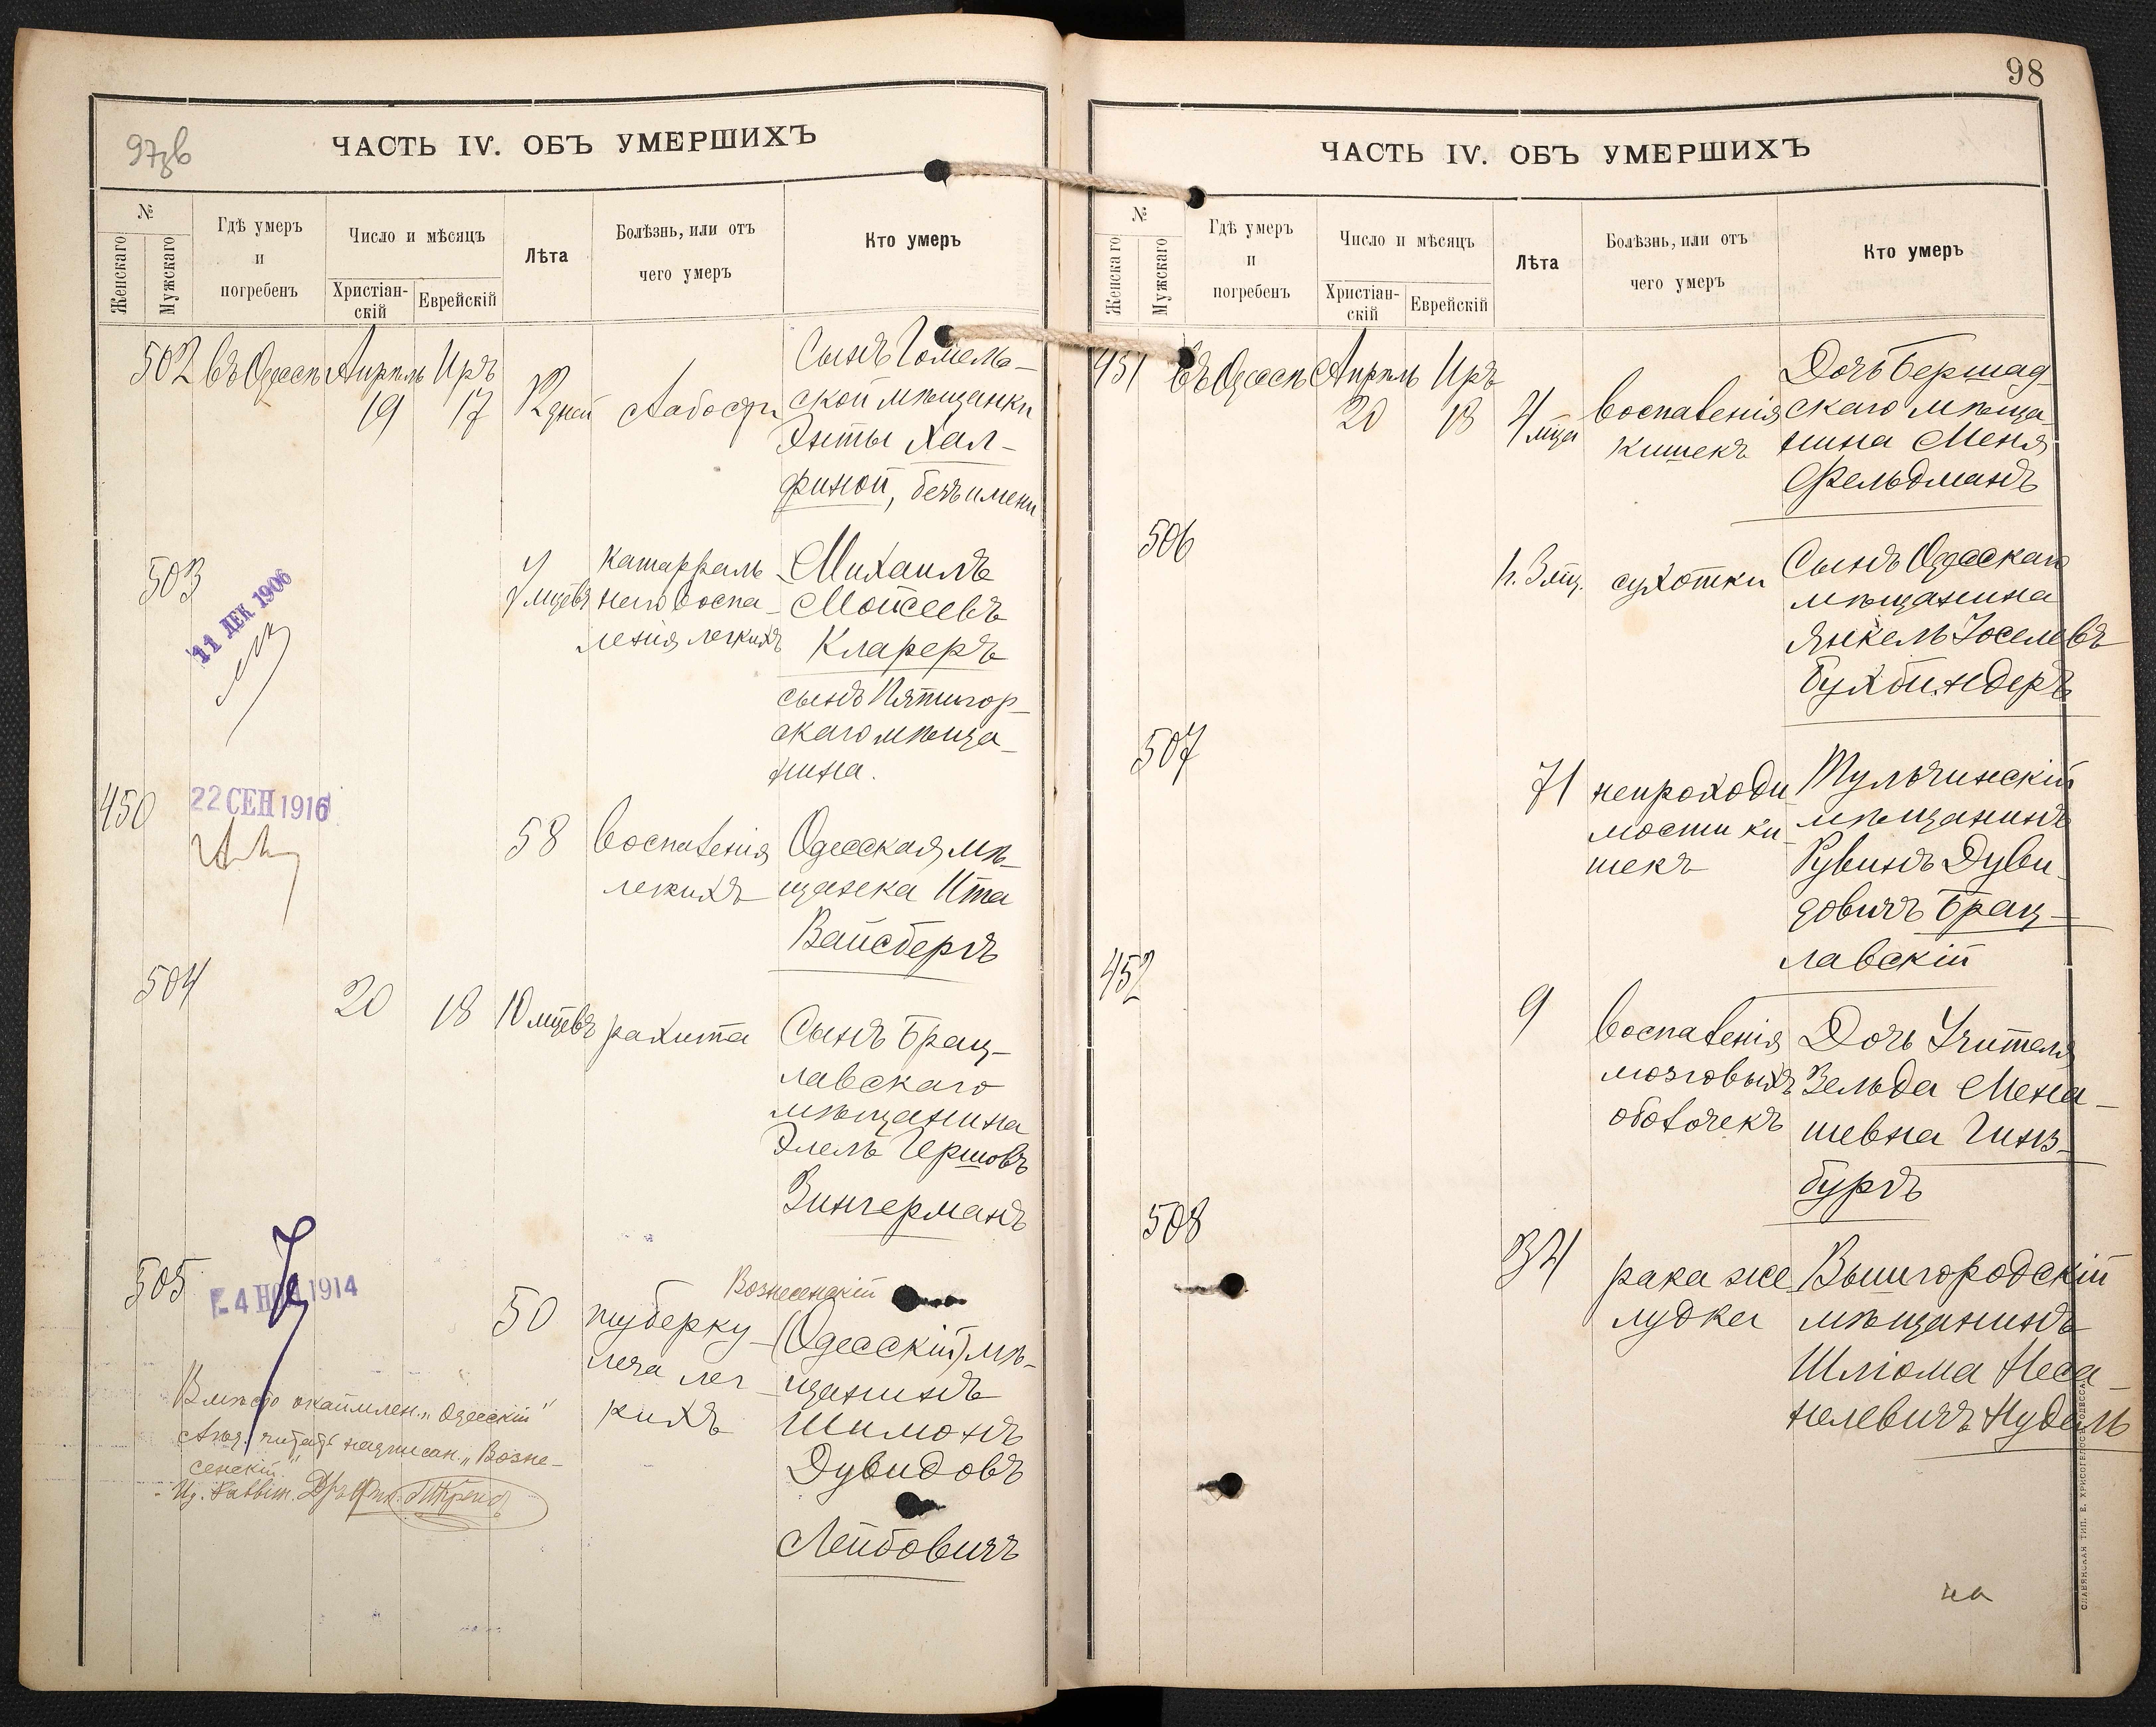 97зв
ЧАСТЬ IV. ОБЪ УМЕРШИХЪ
№
Женскаго
Мужскаго
Гдѣ умеръ
и
погребенъ
Число и мѣсяцъ
Христіан-
скій
Еврейскій
Лѣта
Болѣзнь, или отъ
чего умеръ
Кто умеръ
502 въ Одессѣ Апрѣль Иръ
19 17
дней слабости
Сынъ Гомель-
ской мѣщанки
Энты Хал-
финой, безъ имени
503
11 ДЕК 1906
мцевъ
катарраль
наго воспа-
ленія легкихъ
Михаилъ
Моисеевъ
Клареръ
сынъ Пятигор-
скаго мѣща-
нина.
450
22 СЕН 1916
58
воспаленія
легкихъ
Одесская мѣ-
щанка Ита
Вайсбергъ
504
20 18 10 мцевъ рахита
Сынъ Брац-
лавскаго
мѣщанина
Элель Гершовъ
Зингерманъ
505
-4 НОЯ 1914
50
туберку-
леза лег-
кихъ
Вознесенскій
(Одесскій) мѣ-
щанинъ
Шимонъ
Дувидовъ
Лейбовичъ
Вмѣсто окаймлен. „Одесскій"
читать надписан. „Возне-
сенскій"
98
ЧАСТЬ IV. ОБЪ УМЕРШИХЪ
№
Женскаго
Мужскаго
Гдѣ умеръ
и
погребенъ
Число и мѣсяцъ
Христіан-
скій
Еврейскій
Лѣта
Болѣзнь, или отъ
чего умеръ
Кто умеръ
451 въ Одессѣ Апрѣль Иръ
20 18 4
мца
воспаленія
кишекъ
Дочь Бершад-
скаго мѣща-
нина Меня
Фельдманъ
506
сухотки
Сынъ Одесскаго
мѣщанина
Янкель Іоселевъ
Бухбиндеръ
507
71
непроходи-
мости ки-
шекъ
Тульчинскій
мѣщанинъ
Рувинъ Дуви-
довичъ Брац-
лавскій
452
9
воспаленія
мозговыхъ
оболочекъ
Дочь Учителя
Зельда Мена-
шевна Гинз-
бургъ
508
34
рака же
лудка
Вышгородскій
мѣщанинъ
Шліома Неса-
нелевичъ Нудель
СЛАВЯНСКАЯ ТИП. Е. ХРИСОГЕЛОСЪ ОДЕССА